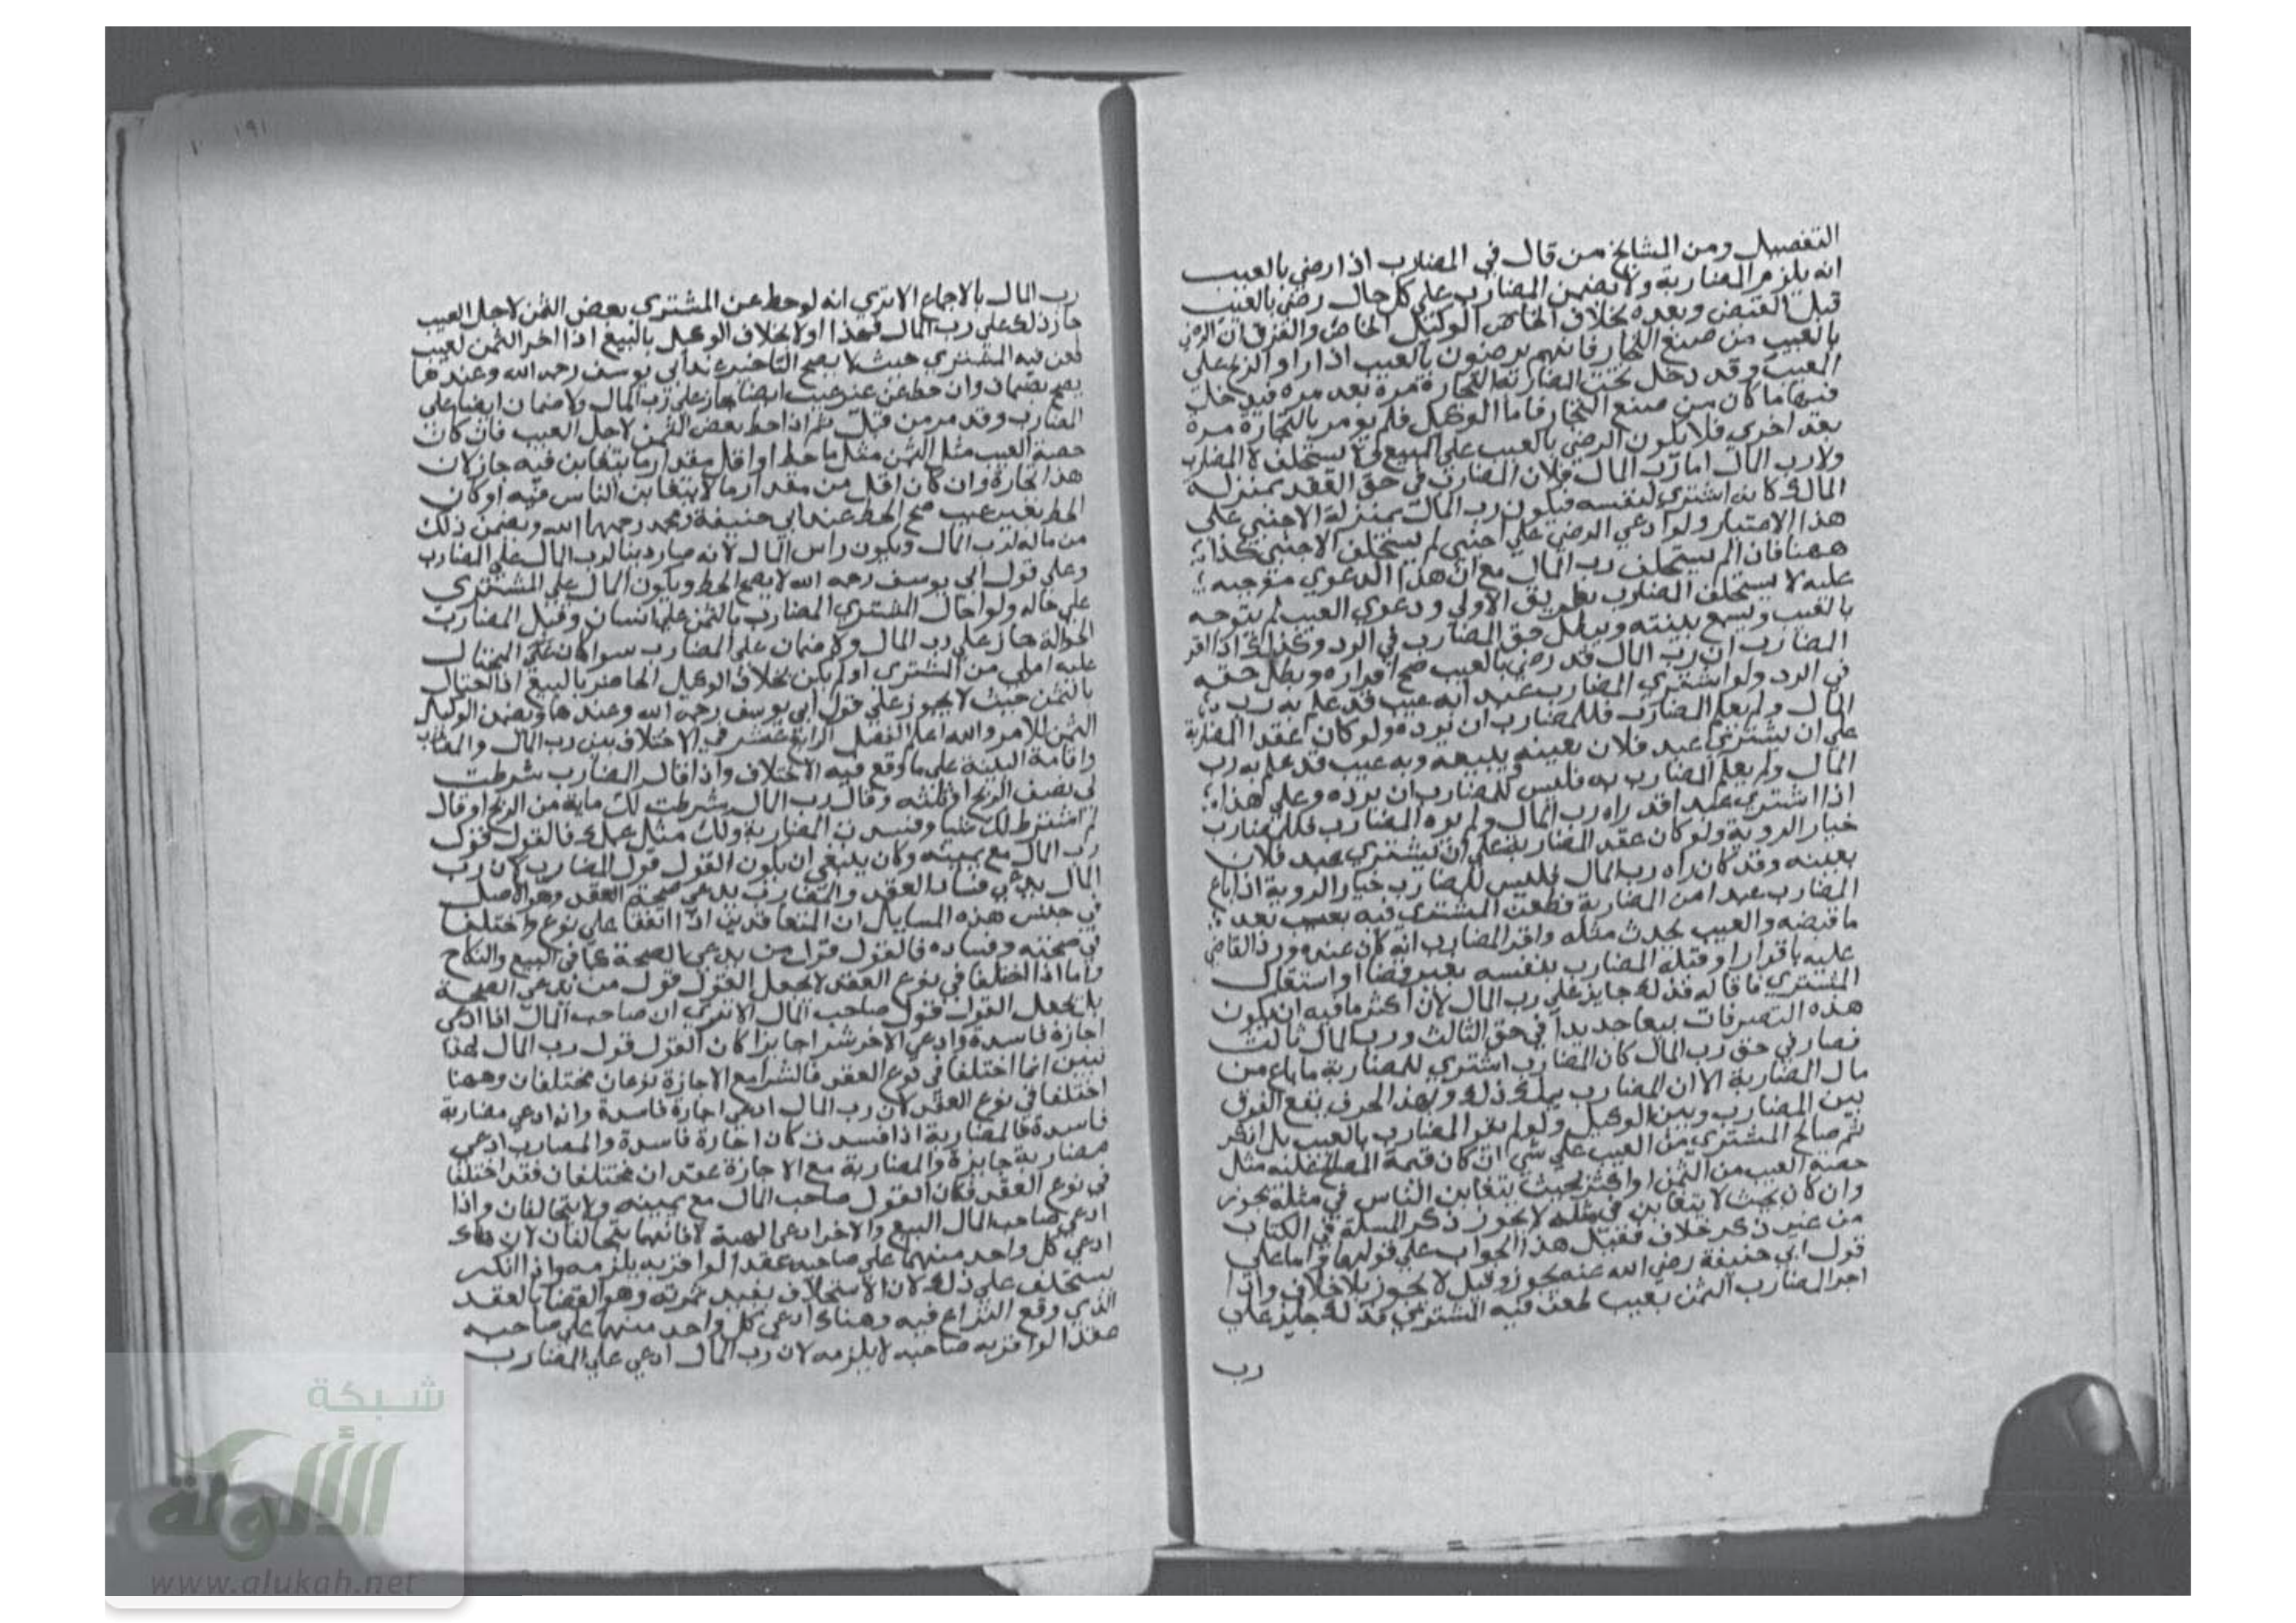 التفصيل ومن المشايخ من قال في المضارب اذا رضي بالعيب
انه يلزم المضاربة ولا يضمن المضارب علي كل حال رضي بالعيب
قبل القبض وبعده بخلاف الوكيل الخاص والفرق ان الرضي
بالعيب من صنيع التجار فانهم يرضون بالعيب اذا راوا الربح علي
العيب وقد دخل تحت المضاربة التجارة مرة بعد مرة فيدخل
فيها ما كان من صنيع التجار فاما الوكيل فلم يومر بالتجارة مرة
بعد اخري فلا يكون الرضي بالعيب علي المبيع لا يستحلف لا المضارب
ولا رب المال اما رب المال فلان المضارب في حق العقد بمنزلة
المالك كانه اشتري لنفسه فيكون رب المال بمنزلة الاجنبي علي
هذا الاعتبار ولو ادعي الرضي علي اجنبي لم يستحلف الاجنبي كذا
ههنا فان لم يستحلف رب المال مع ان هذا الدعوي متوجبه
عليه لا يستحلف المضارب بطريق الاولي ودعوي العيب لم يتوجه
بالعيب ويسمع بينته ويبطل حق المضارب في الرد وكذلك اذا اقر
المضارب ان رب المال قد رضي بالعيب صح اقراره ويبطل حقه
في الرد ولو اشتري المضارب عبدا به عيب قد علم به رب
المال ولم يعلم المضارب فللمضارب ان يرده ولو كان عقد المضاربة
علي ان يشتري عبد فلان بعينه يبيعه وبه عيب قد علم به رب
المال ولم يعلم المضارب به فليس للمضارب ان يرده وعلي هذا
اذا اشتري عبدا قد راه رب المال ولم يره المضارب فللمضارب
خيار الروية ولو كان عقد المضاربة علي ان يشتري عبد فلان
بعينه وقد كان راه رب المال فليس للمضارب خيار الروية اذا باع
المضارب عبدا من المضاربة فطعن المشتري فيه بعيب بعد
ما قبضه والعيب يحدث مثله واقر المضارب انه كان عنده ورد القاضي
عليه باقراره او قبله المضارب بنفسه بغير قضا او استقال
المشتري فاقاله فذلك جايز علي رب المال لان اكثر ما فيه ان يكون
هذه التصرفات بيعا جديدا في حق الثالث ورب المال ثالث
فصار في حق رب المال كان المضارب اشتري للمضاربة ما باع من
مال المضاربة الا ان المضارب يملك ذلك وبهذا الحرف يقع الفرق
بين المضارب وبين الوكيل ولو لم يقر المضارب بالعيب بل انكر
ثم صالح المشتري من العيب علي شي ان كان قيمة المصالح عليه مثل
حصة العيب من الثمن او اكثر بحيث يتغابن الناس في مثله يجوز
وان كان بحيث لا يتغابن في مثله لا يجوز ذكر المسلة في الكتاب
من غير ذكر خلاف فقيل هذا الجواب علي قولهما واما علي
قول ابي حنيفة رضي الله عنه يجوز وقيل لا يجوز بلا خلاف واذا
اخر المضارب الثمن بعيب طعن فيه المشتري فذلك جايز علي
رب
١٩١
رب المال بالاجماع الا تري انه لو حط عن المشتري بعض الثمن لاجل العيب
جاز ذلك علي رب المال فهذا اولا بخلاف الوكيل بالبيع اذا اخر الثمن لعيب
طعن فيه المشتري حيث لا يصح التاخير عند ابي يوسف رحمه الله وعندهما
يصح بضمان وان حط عن غير عيب ايضا جاز علي رب المال ولا ضمان ايضا علي
المضارب وقد مر من قبل ثم اذا حط بعض الثمن لاجل العيب فان كان
حصة العيب مثل الثمن مثل ما حط او اقل مقدار ما يتغابن فيه جاز لان
هذا تجارة وان كان اقل من مقدار ما لا يتغابن الناس فيه او كان
الحط بغير عيب صح الحط عند ابي حنيفة ومحمد رحمهما الله ويضمن ذلك
من ماله لرب المال ويكون راس المال لانه صار دينا لرب المال علي المضارب
وعلي قول ابي يوسف رحمه الله لا يصح الحط ويكون المال علي المشتري
علي حاله ولو احال المشتري المضارب بالثمن علي انسان وقبل المضارب
الحوالة جاز علي رب المال ولا ضمان علي المضارب سوا كان المحتال
عليه املي من المشتري او لم يكن بخلاف الوكيل الخاص بالبيع اذا احتال
بالثمن حيث لا يجوز علي قول ابي يوسف رحمه الله وعندهما ويضمن الوكيل
الثمن للامر والله اعلم الفصل الرابع عشر في الاختلاف بين رب المال والمضارب
واقامة البينة علي ما وقع فيه الاختلاف واذا قال المضارب شرطت
لي نصف الربح او ثلثه وقال رب المال شرطت لك ماية من الربح او قال
لم اشترط لك شيا وفسدت المضاربة ولك مثل عملك فالقول قول
رب المال مع يمينه وكان ينبغي ان يكون القول قول المضارب لان رب
المال يدعي فساد العقد والمضارب يدعي صحة العقد وهو الاصل
في جنس هذه المسايل ان المتعاقدين اذا اتفقا علي نوع واختلفا
في صحته وفساده فالقول قول من يدعي الصحة كما في البيع والنكاح
واما اذا اختلفا في نوع العقد لا يجعل القول قول من يدعي الصحة
بل يجعل القول قول صاحب المال الا تري ان صاحب المال اذا ادعي
اجارة فاسدة وادعي الاخر شرا جايزا كان القول قول رب المال لهذا
تبين انما اختلفا في نوع العقد فالشرا مع الاجارة نوعان مختلفان وههنا
اختلفا في نوع العقد لان رب المال ادعي اجارة فاسدة وانه ادعي مضاربة
فاسدة فالمضاربة اذا فسدت كان اجارة فاسدة والمضارب ادعي
مضاربة جايزة والمضاربة مع الاجارة عقدان مختلفان فقد اختلفا
في نوع العقد فكان القول صاحب المال مع يمينه ولا يتحالفان واذا
ادعي صاحب المال البيع والاخر ادعي الهبة فانهما يتحالفان لان هناك
ادعي كل واحد منهما علي صاحبه عقدا لو اقر به يلزمه واذا انكر
يستحلف علي ذلك لان الاستحلاف يفيد ثمرته وهو القضا بالعقد
الذي وقع النزاع فيه وهناك ادعي كل واحد منهما علي صاحبه
عقدا لو اقر به صاحبه لا يلزمه لان رب المال ادعي علي المضارب
شبكة
الألوكة
www.alukah.net